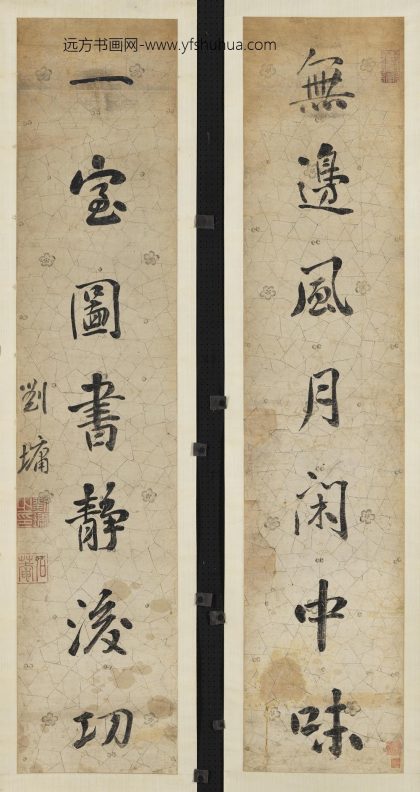 远方书画网-www.yfshuhua.com
無邊風月閑中味
一室圖書靜後功
劉墉